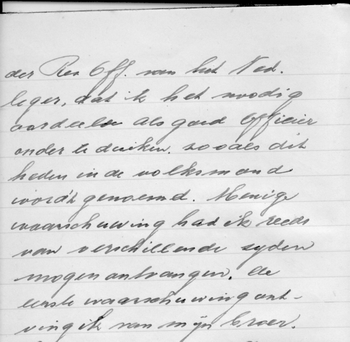 der Res Off. van het Ned.
leger, dat ik het noodig
oordeelde als goed Officier
onder te duiken. zooals dit
heden in de volksmond
wordt genoemd. Menige
waarschuwing had ik reeds
van verschillende zyden
mogen ontvangen. De
eerste waarschuwing ont-
ving ik van mijn broer.